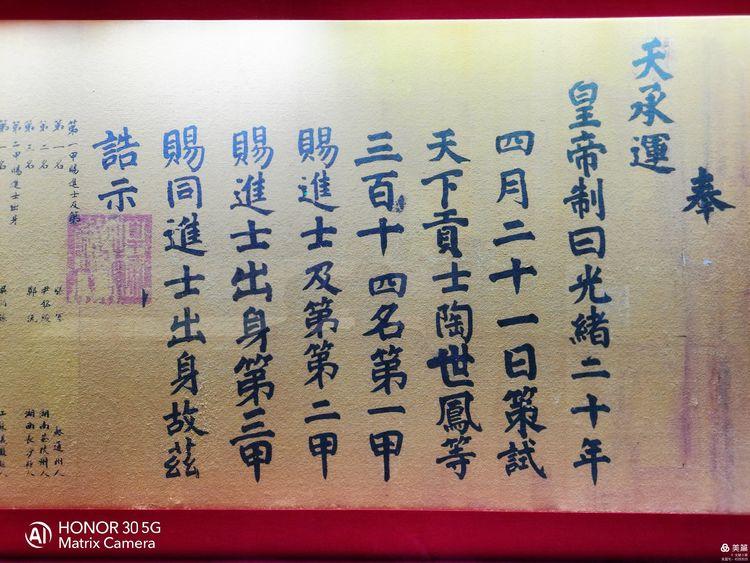 奉
天承運
皇帝制曰光緒二十年
四月二十一日策試
天下貢士陶世鳳等
三百十四名第一甲
賜進士及第第二甲
賜進士出身第三甲
賜同進士出身故茲
誥示
第一甲賜進士及第
第一名
第二名
第三名
鄭沅
湖南茶陵州人
湖南長沙縣人
第二甲賜進士出身
第一名
HONOR 30 5G
Matrix Camera
美篇